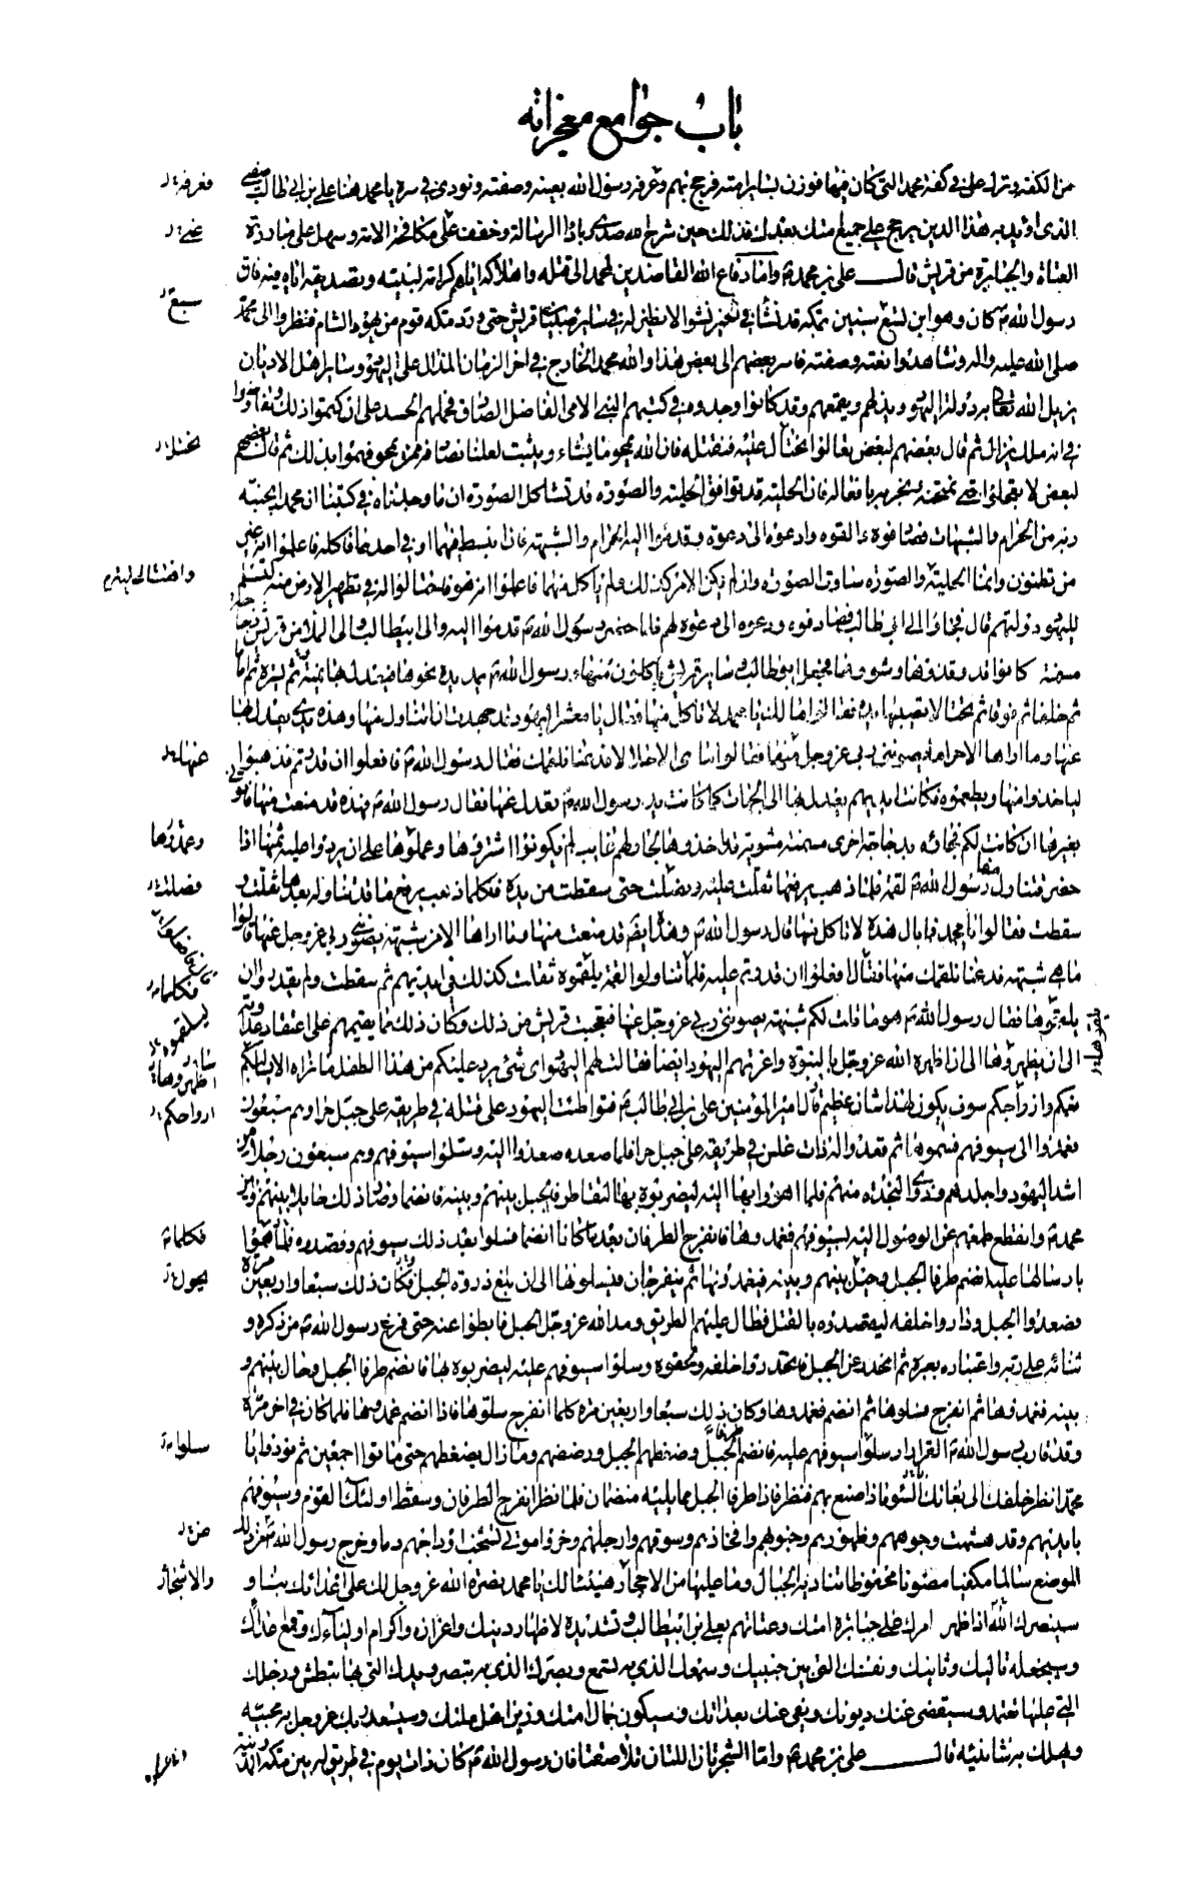 باب جوامع معجزاته
من الكفة وترك علي في كفة محمد التي كان فيها فوزن بسائر امته فرجح بهم وعرفه رسول الله بعينه وصفته ونودي في سره يا محمد هذا علي بن ابي طالب صفيي
الذي اؤيد به هذا الدين يرجح على جميع امتك بعدك فذلك حين شرح الله صدري باداء الرسالة وخفف علي مكافحة الامة وسهل علي مبارزة
العتاة والجبابرة من قريش قال علي بن محمد ع واما دفاع الله القاصدين لمحمد الى قتله واهلاكه اياهم كرامة لنبيه وتصديقه اياه فيه فان
رسول الله ص كان وهو ابن تسع سنين بمكة قد نشأ في الخير نشوا لا نظير له في سائر صبيان قريش حتى ورد مكة قوم من يهود الشام فنظروا الى محمد
صلى الله عليه واله وشاهدوا نعته وصفته فاسر بعضهم الى بعض هذا والله محمد الخارج في اخر الزمان المدال على اليهود وسائر اهل الاديان
يزيل الله تعالى به دولة اليهود ويذلهم ويقمعهم وقد كانوا وجدوه في كتبهم النبي الامي الفاضل الصادق فحملهم الحسد على ان كتموا ذلك وتفاوضوا
في انه ملك يزال ثم قال بعضهم لبعض تعالوا نحتال عليه فنقتله فان الله يمحو ما يشاء ويثبت لعلنا نصادفه ممن يمحو فهموا بذلك ثم قال بعضهم
لبعض لا تعجلوا حتى نمتحنه ونجربه بافعاله فان الحلية قد توافق الحلية والصورة قد تشاكل الصورة ان ما وجدناه في كتبنا ان محمدا يجنبه
ربه من الحرام والشبهات فصادفوه والقوه وادعوه الى دعوة وقدموا اليه الحرام والشبهة فان انبسط فيهما او في احدهما فاكله فاعلموا انه غير
من تظنون وانما الحلية والصورة ساوت الصورة وان لم يكن الامر كذلك ولم ياكل منهما فاعلموا انه هو فاحتالوا له في تطهير الارض منه لتسلم
لليهود دولتهم قال فجاؤا الى ابي طالب فصادفوه ودعوه الى دعوة لهم فلما حضر رسول الله ص قدموا اليه والى ابيطالب والى الملا من قريش دجاجة
مسمنة كانوا قد وقذوها وشووها فجعل ابو طالب وسائر قريش ياكلون منها ورسول الله ص يمد يده نحوها فيعدل بها يمنة ثم يسرة ثم اماما
ثم خلفا ثم فوقا ثم تحتا لا تصيبها يده فقالوا مالك يا محمد لا تاكل منها فقال يا معشر اليهود قد جهدت ان اتناول منها وهذه يدي يعدل بها
عنها وما اراها الا حراما يصونني ربي عز وجل عنها فقالوا ما هي الا حلال فدعنا نلقمك فقال رسول الله ص فافعلوا ان قدرتم فذهبوا
لياخذوا منها ويطعموه فكانت ايديهم يعدل بها الى الجهات كما كانت يد رسول الله ص تعدل عنها فقال رسول الله ص فهذه قد منعت منها فاتوني
بغيرها ان كانت لكم فجاؤه بدجاجة اخرى مسمنة مشوية قد اخذوها لجار لهم غايب لم يكونوا اشتروها وعملوها على ان يردوا عليه ثمنها اذا
حضر فتناول منها رسول الله ص لقمة فلما ذهب يرفعها ثقلت عليه وفصلت حتى سقطت من يده فكلما ذهب يرفع ما قد تناوله بعدها ثقلت و
سقطت فقالوا يا محمد فما بال هذه لا تاكل منها قال رسول الله ص وهذه ايضا قد منعت منها وما اراها الا من شبهة يصونني ربي عز وجل عنها قالوا
ما هي شبهة فدعنا نلقمك منها فقال افعلوا ان قدرتم عليه فلما تناولوا لقمة يلقموه ثقلت كذلك في ايديهم ثم سقطت ولم يقدروا ان
يلقموها فقال رسول الله ص هو ما قلت لكم شبهة يصونني ربي عز وجل عنها فتعجبت قريش من ذلك وكان ذلك مما يقيمهم على اعتقاد عداوته
الى ان يظهروها الى ان اظهره الله عز وجل بالنبوة واغرتهم اليهود ايضا فقالت لهم اليهود اي شئ يرد عليكم من هذا الطفل ما نراه الا يسالبكم
نعمكم وازواجكم سوف يكون لهذا شان عظيم قال امير المؤمنين علي بن ابي طالب ع فتواطئت اليهود على قتله في طريقه على جبل حرا وهم سبعون
فعمدوا الى سيوفهم فسموها ثم قعدوا له ذات غلس في طريقه على جبل حرا فلما صعده صعدوا اليه وسلوا سيوفهم وهم سبعون رجلا من
اشد اليهود واجلدهم وذوي النجدة منهم فلما اهووا بها اليه ليضربوه بها التقا طرفا الجبل بينهم وبينه فانضما وصار ذلك حايلا بينهم وبين
محمد ص وانقطع طمعهم عن الوصول اليه بسيوفهم فغمدوها فانفرج الطرفان بعد ما كانا انضما فسلوا بعد ذلك سيوفهم وقصدوه فلما هموا
بارسالها عليه انضم طرفا الجبل وحيل بينهم وبينه فيغمدونها ثم ينفرجان فيسلونها الى ان بلغ ذروة الجبل وكان ذلك سبعا واربعين مرة
فصعدوا الجبل وداروا خلفه ليقصدوه بالقتل فطال عليهم الطريق ومد الله عز وجل الجبل فابطؤا عنه حتى فرغ رسول الله ص من ذكره و
ثنائه على ربه واعتباره بعبره ثم انحدر عن الجبل فانحدروا خلفه ولحقوه وسلوا سيوفهم عليه ليضربوه بها فانضم طرفا الجبل وحال بينهم و
بينه فغمدوها ثم انفرج فسلوها ثم انضم فغمدوها وكان ذلك سبعا واربعين مرة كلما انفرج سلوها فاذا انضم غمدوها فلما كان في اخر مرة
وقد قارب رسول الله ص القرار وسلوا سيوفهم عليه فانضم طرفا الجبل وضغطهم الجبل ورضضهم وما زال يضغطهم حتى ماتوا اجمعين ثم نودي يا
محمد انظر خلفك الى بغاتك السوء ماذا صنع بهم فنظر فاذا طرفا الجبل مما يليه منضمان فلما نظر انفرج الطرفان وسقط اولئك القوم وسيوفهم
بايديهم وقد هشمت وجوههم وظهورهم وجنوبهم وافخاذهم وسوقهم وارجلهم وخروا موتى تشخب اوداجهم دما وخرج رسول الله ص من ذلك
الموضع سالما مكفيا مصونا محفوظا تناديه الجبال وما عليها من الاحجار هنيئا لك يا محمد نصرة الله عز وجل لك على اعدائك بنا و
سينصرك الله اذا ظهر امرك على جبابرة امتك وعتاتهم بعلي بن ابيطالب وتسديده لاظهار دينك واعزازه واكرام اوليائك وقمع اعدائك
وسيجعله تاليك وثانيك ونفسك التي بين جنبيك وسمعك الذي به تسمع وبصرك الذي به تبصر ويدك التي بها تبطش ورجلك
التي عليها تعتمد وسيقضي عنك ديونك ويفي عنك بعداتك وسيكون جمال امتك وزين اهل ملتك وسيسعد ربك عز وجل به محبيه
ويهلك به شانئيه قال علي بن محمد ع واما الشجرتان اللتان تلاصقتا فان رسول الله ص كان ذات يوم في طريق له بين مكة والمدينة
معرفة
عني
سبع
نحتل
عنها
وعمدوها
فصلت
فكلما
اظهروها
ارواحكم
فكلما
يحول
سلوا
من
والاشجار
يلقموها